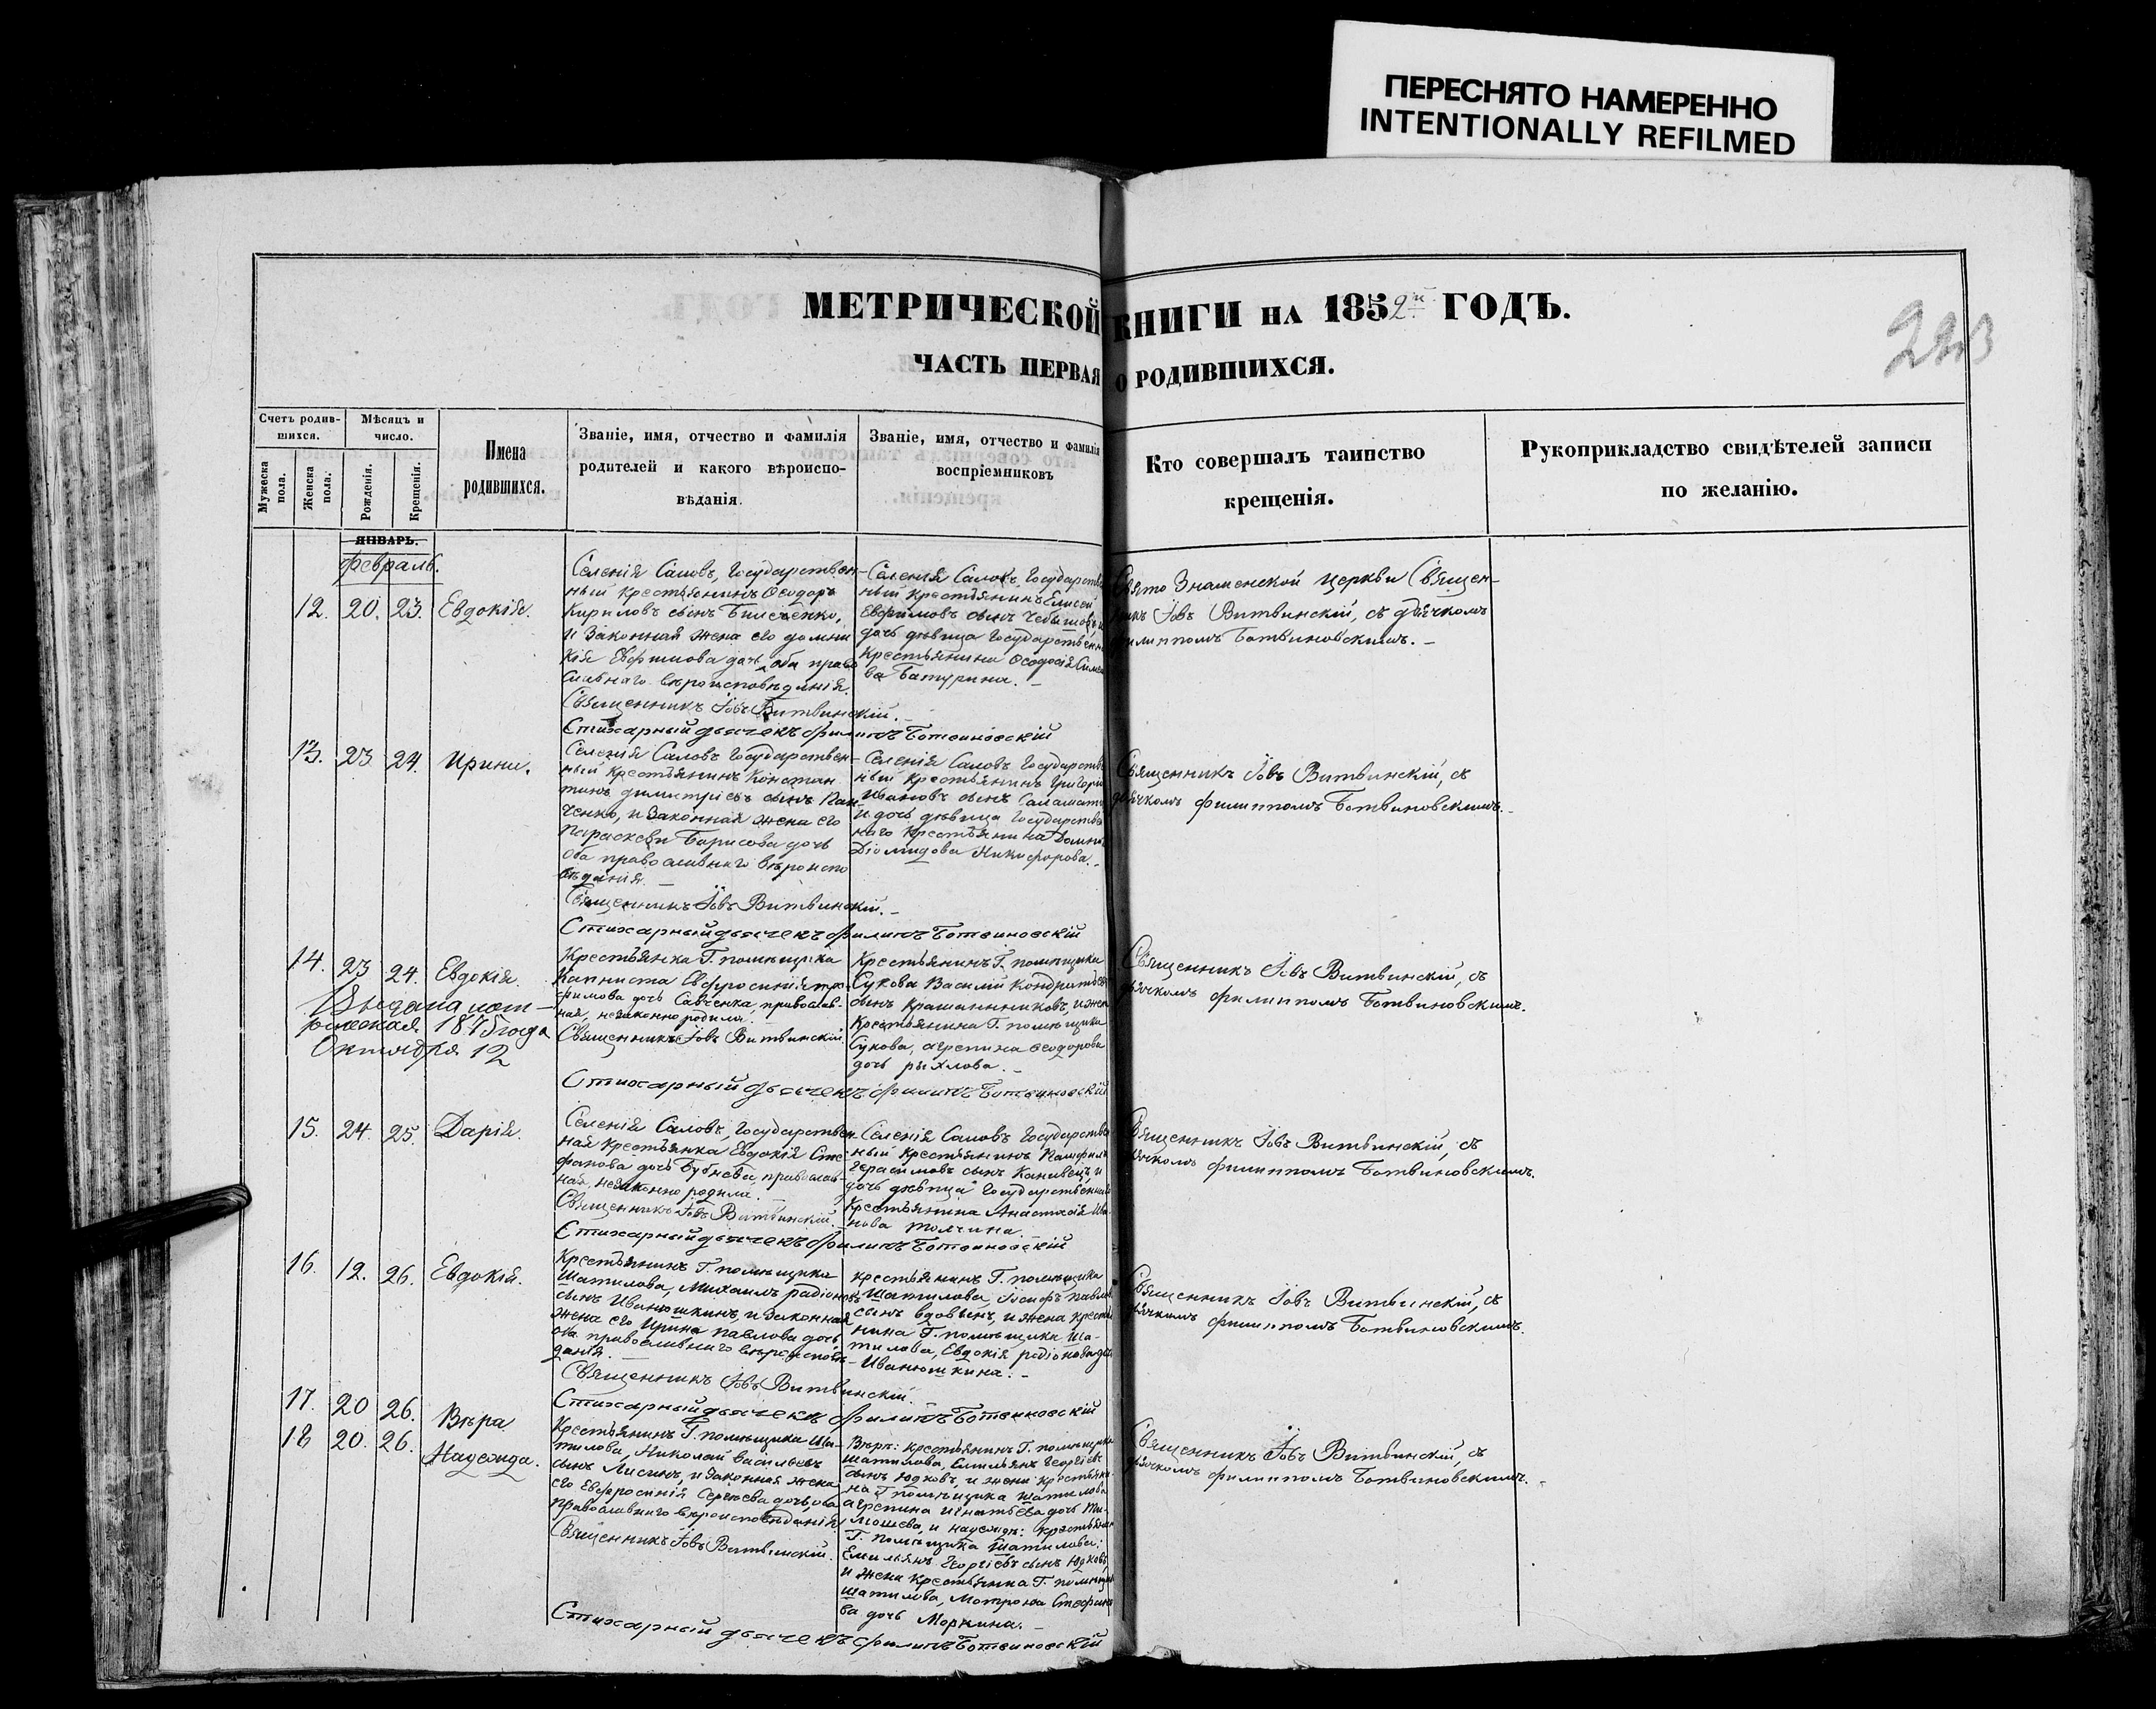 ПЕРЕСНЯТО НАМЕРЕННО
INTENTIONALLY REFILMED
МЕТРИЧЕСКОЙ КНИГИ НА 1852й ГОДЪ.
223
ЧАСТЬ ПЕРВАЯ О РОДИВШИХСЯ.
Счетъ родив-
шихся.
Мѣсяцъ и
число.
Мужеска
пола.
Женска
пола.
Рожденія.
Крещенія.
Имена
родившихся.
Званіе, имя, отчество и фамилія
родителей и какого вѣроиспо-
вѣданія.
Званіе, имя, отчество и фамилія
воспріемниковъ
Кто совершалъ таинство
крещенія.
Рукоприкладство свидѣтелей записи
по желанію.
ЯНВАРЬ.
февраль.
12. 20. 23. Евдокія.
Селенія Саловъ, Государствен-
ный крестьянинъ Ѳеодоръ
Кириловъ сынъ
и законная жена его
Ефимова дочь, оба право
славнаго вѣроисповѣданія.
Священникъ Іовъ Витвинскій.
Стихарный дьячекъ Филипъ Ботвиновскій
Селенія Саловъ, Государствен
ный крестьянинъ Елисей
Ефимовъ сынъ
дочь дѣвица Государственна
крестьянина Ѳеодосія
ва Батурина.
Свято Знаменской церкви Священ-
никъ Іовъ Витвинскій, съ дьячкомъ
филиппомъ Ботвиновскимъ.
13. 23 24. Ирина.
Селенія Саловъ Государствен-
ный крестьянинъ Констан
тинъ Димитріевъ сынъ Пан-
ченко, и законная жена его
Параскева Борисова дочь
оба православнаго вѣроиспо
вѣданія.
Священникъ Іовъ Витвинскій.
Стихарный дьячекъ Филипъ Ботвиновскій
Селенія Саловъ Государстве
ный крестьянинъ Григорій
Ивановъ сынъ
и дочь дѣвица Государстве
наго крестьянина
Діомидова Никифорова.
Священникъ Іовъ Витвинскій, съ
дьячкомъ филиппомъ Ботвиновскимъ.
14. 23 24. Евдокія.
Выдана мет-
рическая 1875 года
Октября 12
Крестьянка Г. помѣщика
Капниста Евфросинія Тро-
фимова дочь Савченка, православ-
ная, незаконно родила.
Священникъ Іовъ Витвинскій.
Стихарный дьячекъ Филипъ Ботвиновскій
Крестьянинъ Г. помѣщика
Сукова Василій Кондратьевъ
сынъ Крашанинниковъ, и жена
Крестьянина Г. помѣщика
Сукова, Агрепина Ѳеодорова
дочь рыхлова.
Священникъ Іовъ Витвинскій, съ
дьячкомъ филиппомъ Ботвиновскимъ.
15. 24. 25. Дарія.
Селенія Саловъ, Государствен-
ная крестьянка Евдокія Сте-
фанова дочь Бубнева, православ-
ная, незаконно родила.
Священникъ Іовъ Витвинскій.
Стихарный дьячекъ Филипъ Ботвиновскій
Селенія Саловъ Государстве
ный крестьянинъ Памфилъ
Герасимовъ сынъ Канивецъ, и
дочь дѣвица Государственнаго
крестьянина Анастасія Ива-
нова Толчина.
Священникъ Іовъ Витвинскій, съ
дьячкомъ филиппомъ Ботвиновскимъ.
16. 12. 26. Евдокія.
Крестьянинъ Г. помѣщика
Шатилова, Михаилъ радіоновъ
сынъ Иванюшкинъ, и законная
жена его Ирина павлова дочь,
оба православнаго вѣроисповѣ-
данія.
Священникъ Іовъ Витвинскій.
Стихарный дьячекъ Филипъ Ботвиновскій
крестьянинъ Г. помѣщика
Шатилова, Іосифъ павловъ
сынъ вдовинъ, и жена крестья
нина Г. помѣщика Ша-
тилова, Евдокія радіонова дочь
Иванюшкина.
Священникъ Іовъ Витвинскій, съ
дьячкомъ филиппомъ Ботвиновскимъ.
17. 20 26. Вѣра
18 20. 26. Надежда.
Крестьянинъ Г. помѣщика Ша-
тилова, Николай Васильевъ
сынъ Лисинъ, и законная жена
его Евфросинія Сергѣева дочь, оба
православнаго вѣроисповѣданія
Священникъ Іовъ Витвинскій.
Стихарный дьячекъ Филипъ Ботвиновскій
Вѣры: крестьянинъ Г. помѣщика
Шатилова, Емильянъ Георгіевъ
сынъ Юдковъ, и жена крестьяни-
на Г. помѣщика Шатилова
Агрепина Игнатьева дочь Ти-
мошева, и надежды: крестьянин
Г. помѣщика Шатилова:
Емильянъ Георгіевъ сынъ Юдковъ,
и жена крестьянина Г. помѣщик
Шатилова, Мотрона Стефано
ва дочь Моркина.
Священникъ Іовъ Витвинскій, съ
дьячкомъ филиппомъ Ботвиновскимъ.